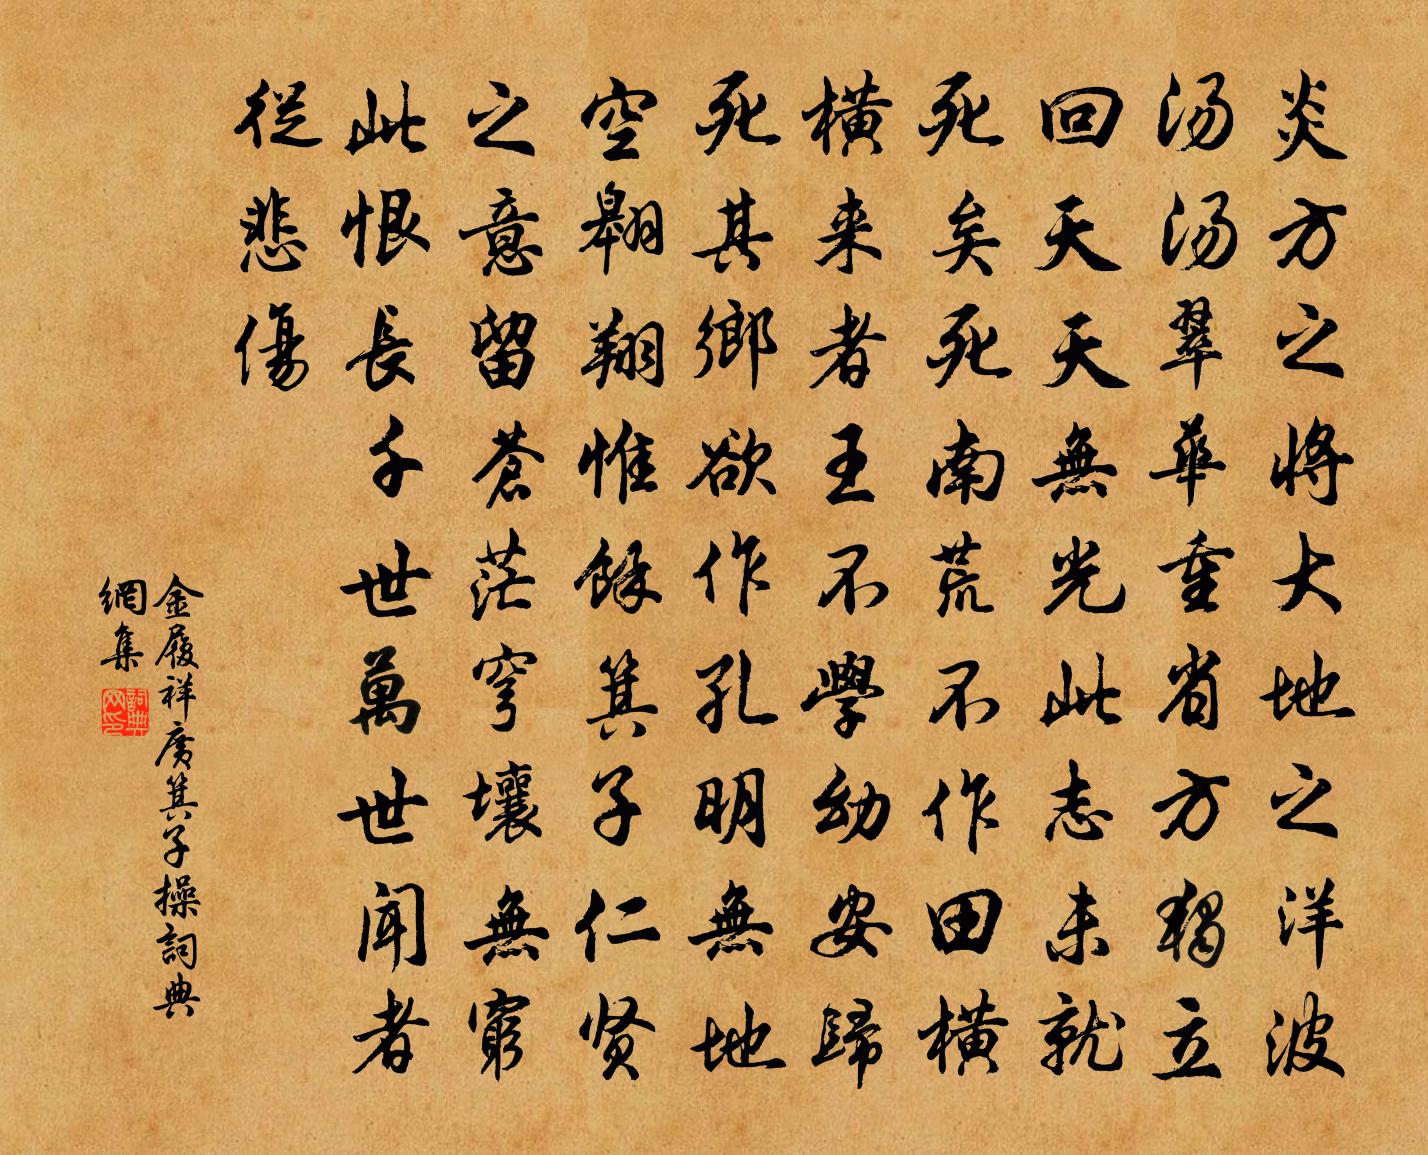 炎方之將大地之洋波
湯湯翠華重省方獨立
回天天無光此志未就
死矣死南荒不作田橫
橫來者王不學幼安歸
死其鄉欲作孔明無地
空翱翔惟餘箕子仁賢
之意留蒼茫穹壤無窮
此恨長千世萬世聞者
從悲傷
金履祥廣箕子操詞典
網集
詞典網印